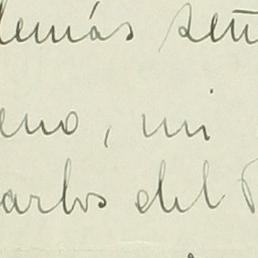 demás señ
eno, mi
arlos del P